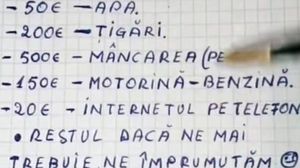 - 50€ - APA.
- 200€ - ȚIGĂRI.
- 500€ - MÂNCAREA (PE
- 150€ - MOTORINĂ - BENZINĂ.
- 20€ - INTERNETUL PE TELEFON
• RESTUL DACĂ NE MAI
TREBUIE NE ÎMPRUMUTĂM